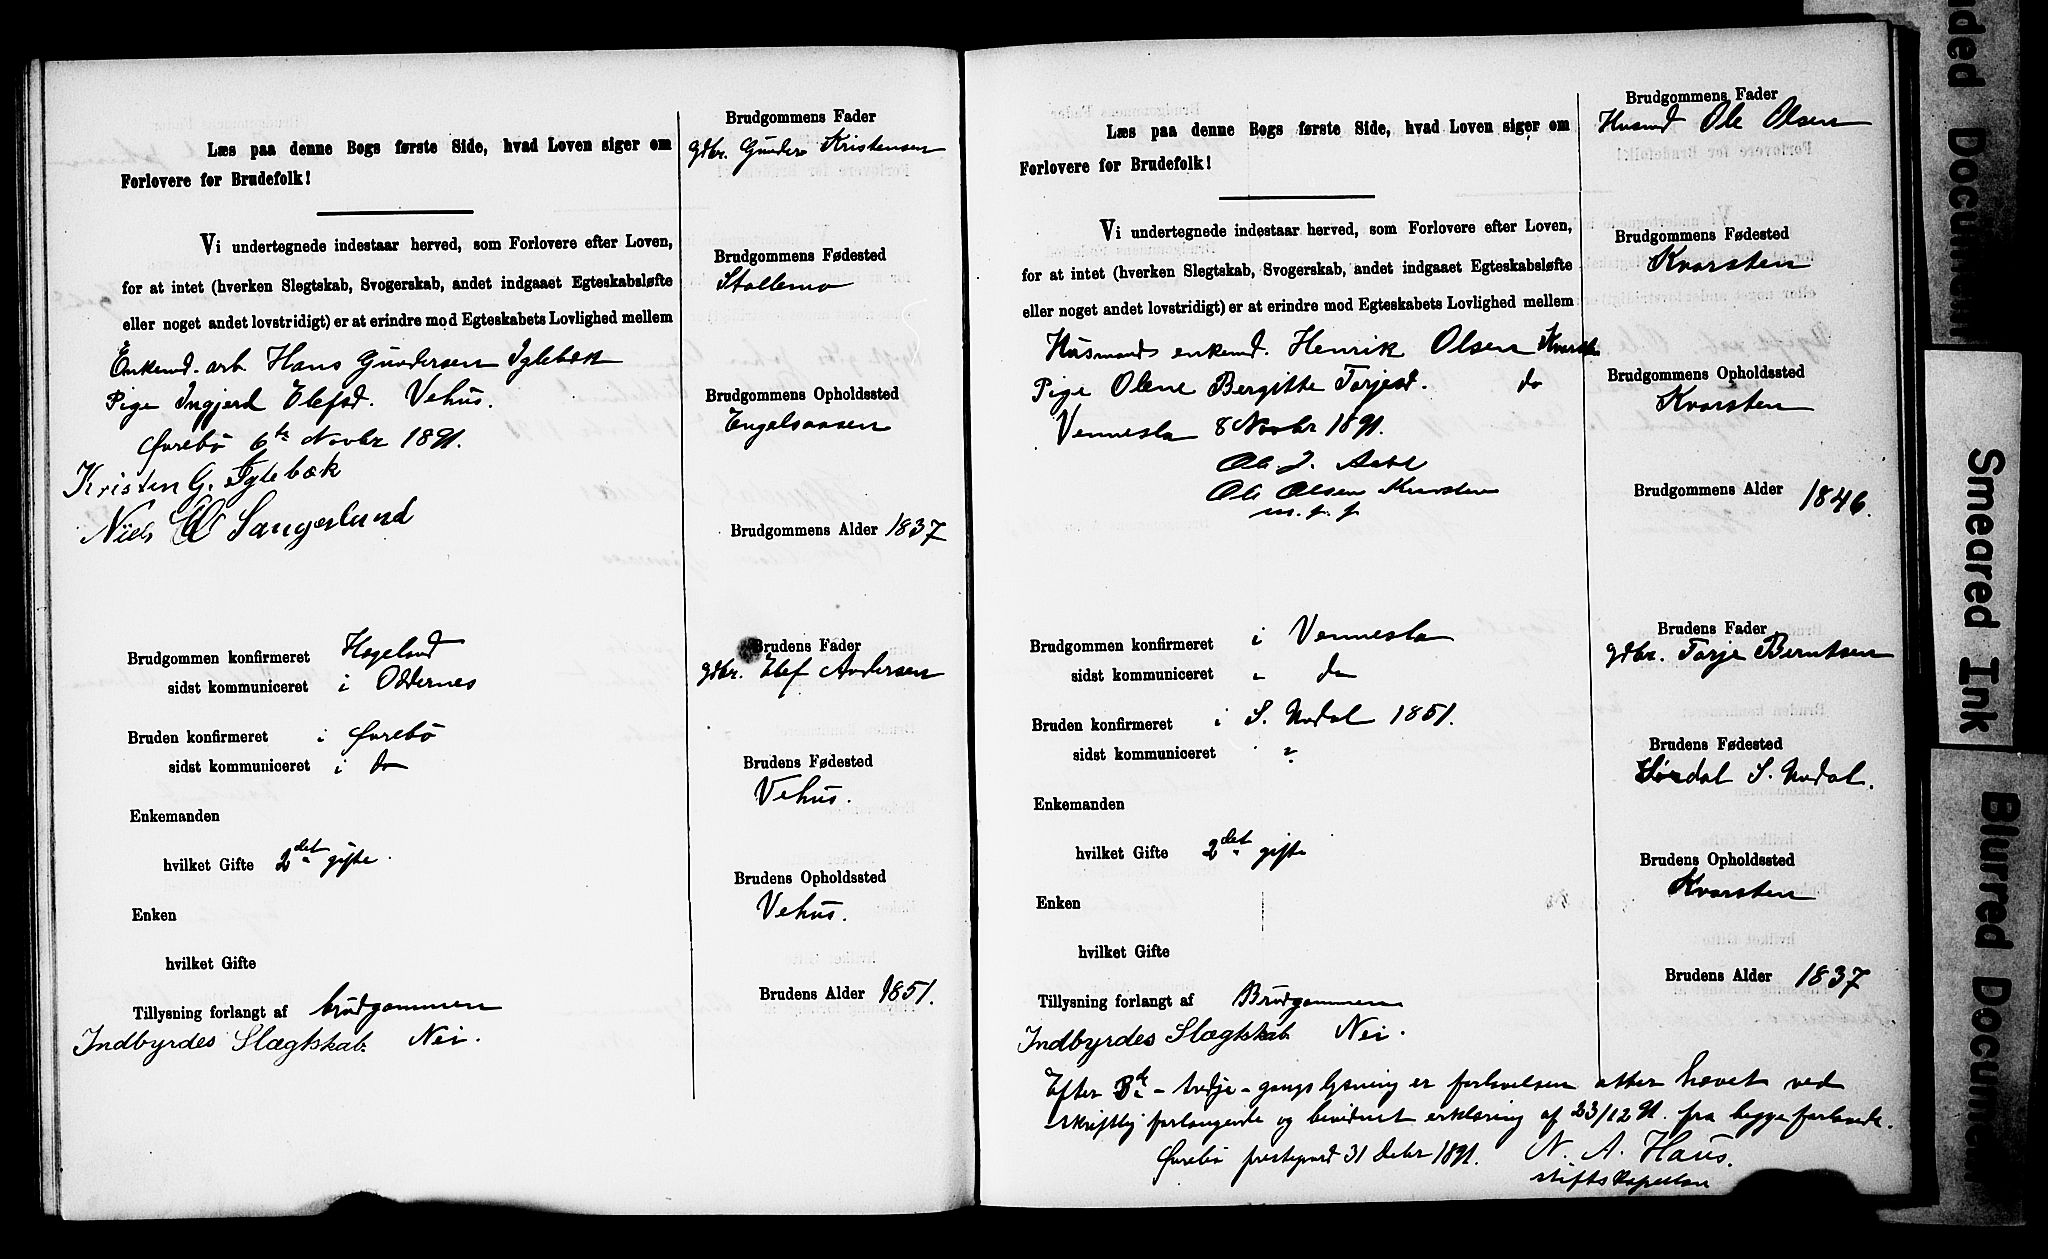 Læs paa denne Bogs første Side, hvad Loven siger om
Forlovere for Brudefolk!
Vi undertegnede indestaar herved, som Forlovere efter Loven,
for at intet (hverken Slegtskab, Svogerskab, andet indgaaet Egteskabsløfte
eller noget andet lovstridigt) er at erindre mod Egteskabets Lovlighed mellem
Enkemd. arb Hans Gundersen Iglebæk
Pige Ingjerd Elefsd. Vehus.
Øvrebø 6te Novbr 1891.
Kristen G. Iglebæk
Niels Sangeslund
Brudgommen konfirmeret Hægeland
sidst kommuniceret i Oddernes
Bruden konfirmeret i Øvrebø
sidst kommuniceret i do
Enkemanden
hvilket Gifte 2det gifte
Enken
hvilket Gifte
Tillysning forlangt af brudgommen
Indbyrdes Slægtskab. Nei.
Brudgommens Fader
gdbr. Gunder Kristensen
Brudgommens Fødested
Stallemo
Brudgommens Opholdssted
Engelsaasen
Brudgommens Alder 1837
Brudens Fader
gdbr. Elef Andersen
Brudens Fødested
Vehus.
Brudens Opholdssted
Vehus.
Brudens Alder 1851.
Læs paa denne Bogs første Side, hvad Loven siger om
Forlovere for Brudefolk!
Vi undertegnede indestaar herved, som Forlovere efter Loven,
for at intet (hverken Slegtskab, Svogerskab, andet indgaaet Egteskabsløfte
eller noget andet lovstridigt) er at erindre mod Egteskabets Lovlighed mellem
Husmands enkemd. Henrik Olsen Kvarsten
Pige Olene Bergitte Torjesd. do
Vennesla 8 Novbr 1891.
Ole J.
Ole Olsen Kvarsten
m. f. p
Brudgommen konfirmeret i Vennesla
sidst kommuniceret " do
Bruden konfirmeret i S. Undal 1851.
sidst kommuniceret "
Enkemanden
hvilket Gifte 2det gifte
Enken
hvilket Gifte
Tillysning forlangt af Brudgommen
Indbyrdes Slægtskab. Nei.
Brudgommens Fader
Husmd Ole Olsen
Brudgommens Fødested
Kvarsten
Brudgommens Opholdssted
Kvarsten
Brudgommens Alder 1846.
Brudens Fader
gdbr. Torje Berntsen
Brudens Fødested
Hørdal S. Undal.
Brudens Opholdssted
Kvarsten
Brudens Alder 1837
Efter 3die - tredje - gangs lysning er forlovelsen atter hævet ved
skriftlig forlangende og bevidnet erklæring af 23/12 91. fra begge forlovede.
Øvrebø prestegaard 31 Debr 1891. N. A. Haus.
stiftskapellan
Smeared Ink
Blurred Docume